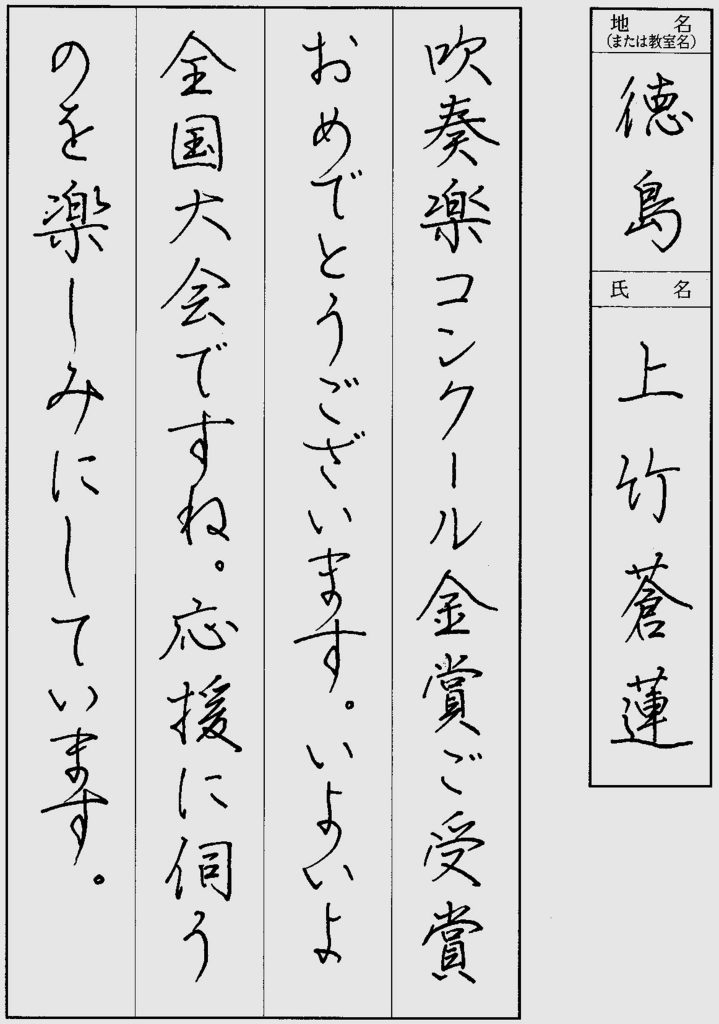 地名
(または教室名)
徳島
氏名
上竹蒼蓮
吹奏楽コンクール金賞ご受賞
おめでとうございます。いよいよ
全国大会ですね。応援に伺う
のを楽しみにしています。